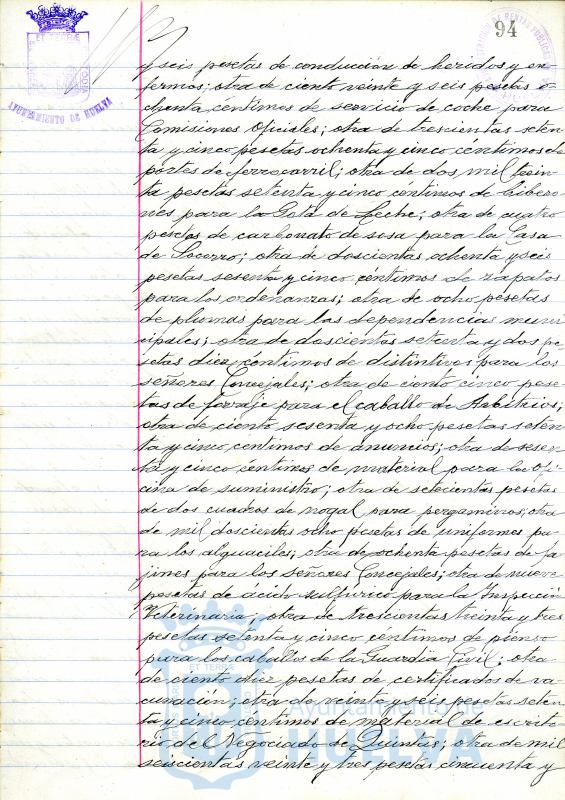 94
AYUNTAMIENTO DE HUELVA
y seis pesetas de conducción de heridos y en-
fermos; otra de ciento veinte y seis pesetas o-
chenta céntimos de servicio de coche para
Comisiones Oficiales; otra de trescientas seten-
ta y cinco pesetas ochenta y cinco céntimos de
portes de ferrocarril; otra de dos mil trein-
ta pesetas setenta y cinco céntimos de bibero-
nes para la Gota de Leche; otra de cuatro
pesetas de carbonato de sosa para la Casa
de Socorro; otra de doscientas ochenta y seis
pesetas sesenta y cinco céntimos de zapatos
para los ordenanzas; otra de ocho pesetas
de plumas para las dependencias muni-
cipales; otra de doscientas setenta y dos pe-
setas diez céntimos de distintivos para los
señores Concejales; otra de ciento cinco pese-
tas de forraje para el caballo de Arbitrios;
otra de ciento sesenta y ocho pesetas seten-
ta y cinco céntimos de anuncios; otra de sesen-
ta y cinco céntimos de material para la Ofi-
cina de suministro; otra de setecientas pesetas
de dos cuadros de nogal para pergaminos; otra
de mil doscientas ocho pesetas de uniformes pa-
ra los alguaciles; otra de ochenta pesetas de fa-
jines para los señores Concejales; otra de nueve
pesetas de ácido sulfúrico para la Inspección
Veterinaria; otra de trescientas treinta y tres
pesetas setenta y cinco céntimos de pienso
para los caballos de la Guardia Civil; otra
de ciento diez pesetas de certificados de va-
cunación; otra de veinte y seis pesetas seten-
ta y cinco céntimos de material de escrito-
rio de Negociado de Quintas; otra de mil
seiscientas veinte y tres pesetas cincuenta y
Ayuntamiento de
HUELVA